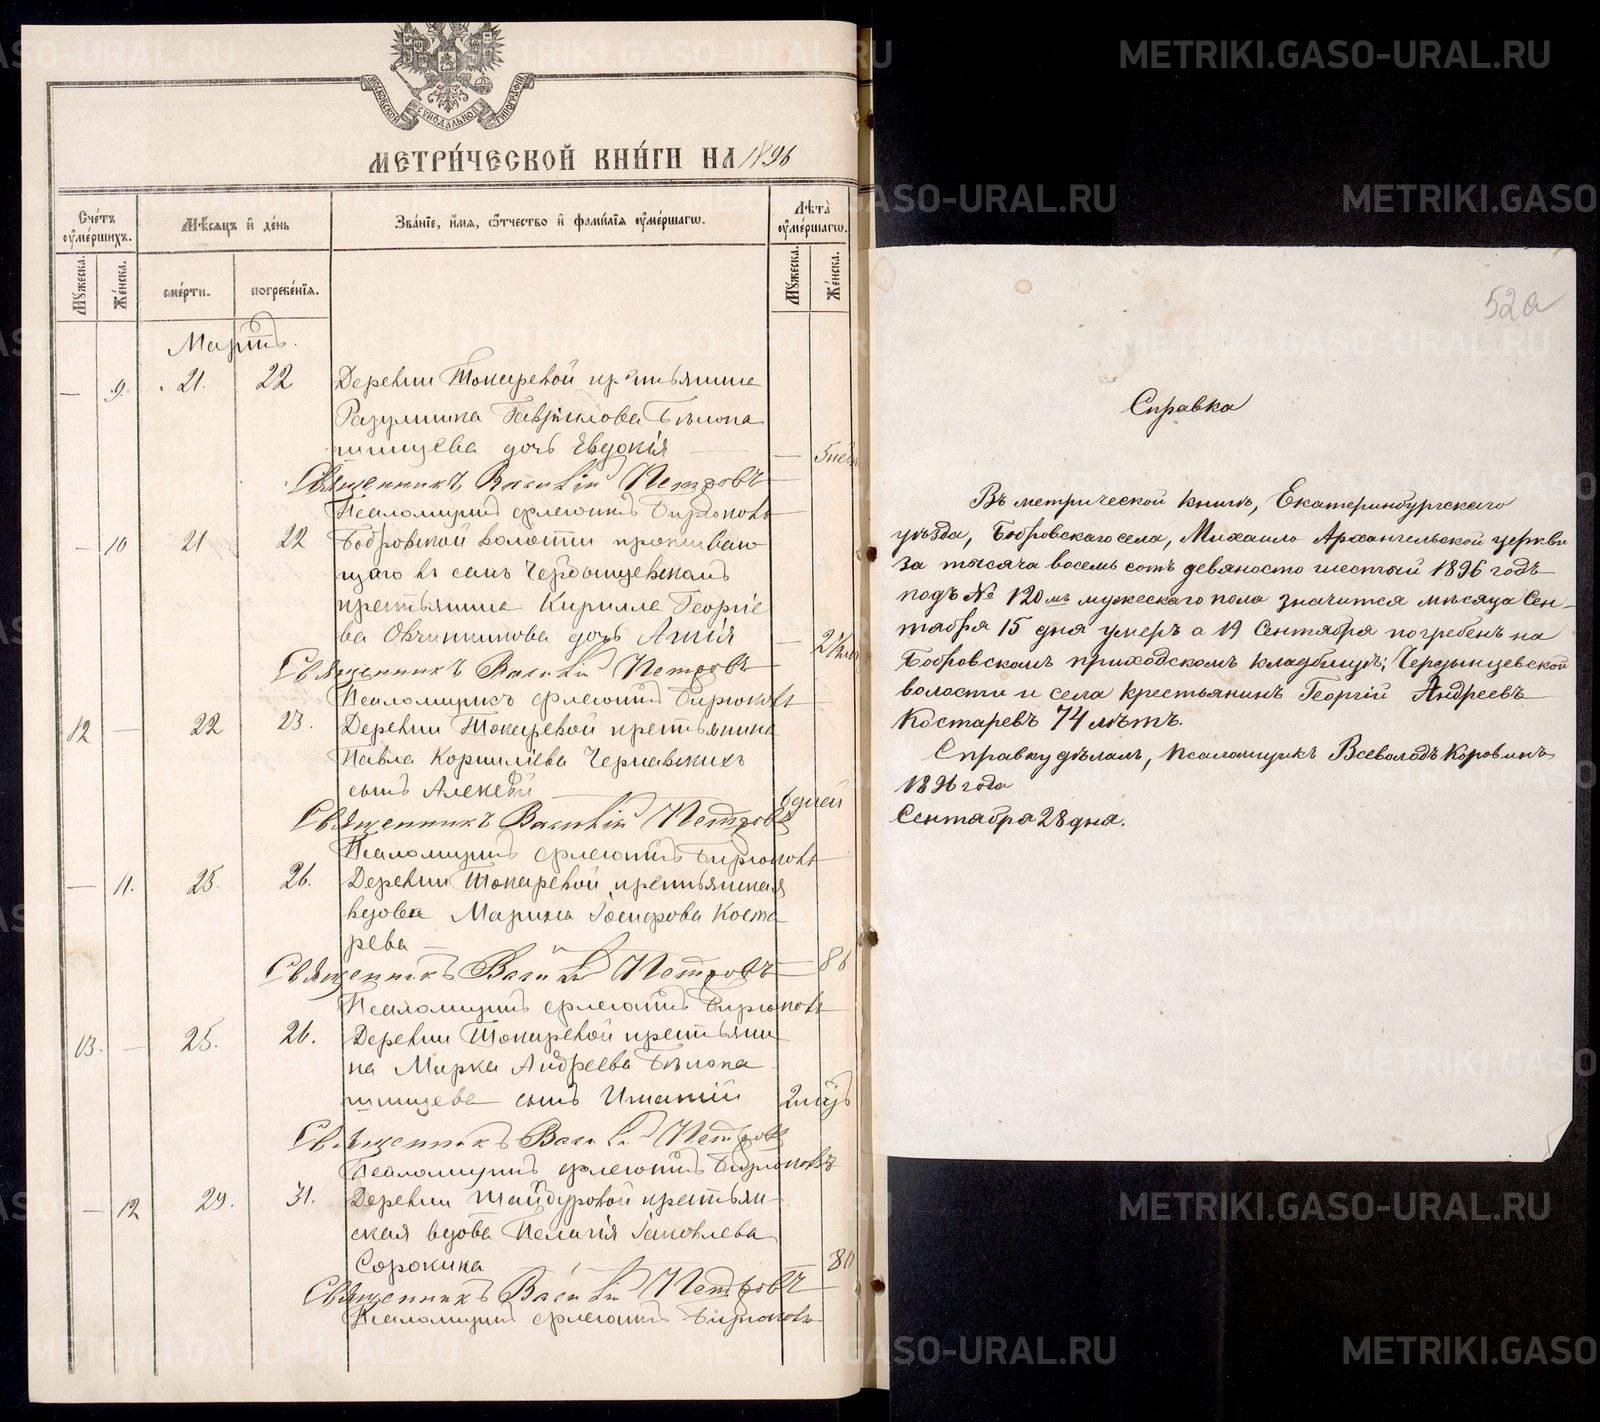 МОСКОВСКОЙ СѴНОДАЛЬНОЙ ТИПОГРАФІИ
МЕТРИ́ЧЕСКОЙ КНИ́ГИ НА 1896
Сче́тъ ᲂумершихъ.
Мѣ́сяцъ и҆ де́нь
Зва́нїе, и҆́мя, ѻ҆́тчество и҆ фами́лїя ᲂумершагѡ.
Лѣта̀ ᲂумершагѡ.
Мꙋ́жеска.
Же́нска.
сме́рти.
погребе́нїя.
Мꙋ́жеска.
Же́нска.
Мартъ.
— 9. 21. 22 Деревни Токаревой крестьянина
Разумника Гаврилова Бѣлопа
шицева дочь Евдокія — 5 нед
Священникъ Василій Петровъ
Псаломщикъ Бирюковъ
— 10 21 22 Бобровской волости проживаю
щаго въ селѣ Чердынцевскомъ
крестьянина Кирилла Георгіе
ва Овчинникова дочь —
Священникъ Василій Петровъ
Псаломщикъ Бирюковъ
12 — 22 23. Деревни Токаревой крестьянина
Павла Корниліева Чернавскихъ
сынъ Алексѣй — 6 дней
Священникъ Василій Петровъ
Псаломщикъ Бирюковъ
— 11. 25. 26. Деревни Токаревой крестьянская
вдова Марина Іосифова Коста
рева —
Священникъ Василій Петровъ — 86
Псаломщикъ Бирюковъ
13. — 25. 26. Деревни Токаревой крестьяни
на Марка Андреева Бѣлопа
шицева сынъ Игнатій
Священникъ Василій Петровъ
Псаломщикъ Бирюковъ
— 12 29. 31. Деревни Шайдуровой крестьян-
ская вдова Пелагія Іаковлева
Сорокина 80
Священникъ Василій Петровъ
Псаломщикъ Бирюковъ
52а
Справка
Въ метрической книгѣ, Екатеринбургскаго
уѣзда, Бобровскаго села, Михаило Архангельской церкви
за тысяча восемь сотъ девяносто шестый 1896 годъ
подъ № 120мъ мужескаго пола значится мѣсяца Сен-
тября 15 дня умеръ а 19 Сентября погребенъ на
Бобровскомъ приходскомъ кладбищѣ; Чердынцевской
волости и села крестьянинъ Георгій Андреевъ
Костаревъ 74 лѣтъ.
Справку дѣлалъ, псаломщикъ Всеволодъ Коровинъ
1896 года
Сентября 28 дня.
METRIKI.GASO-URAL.RU